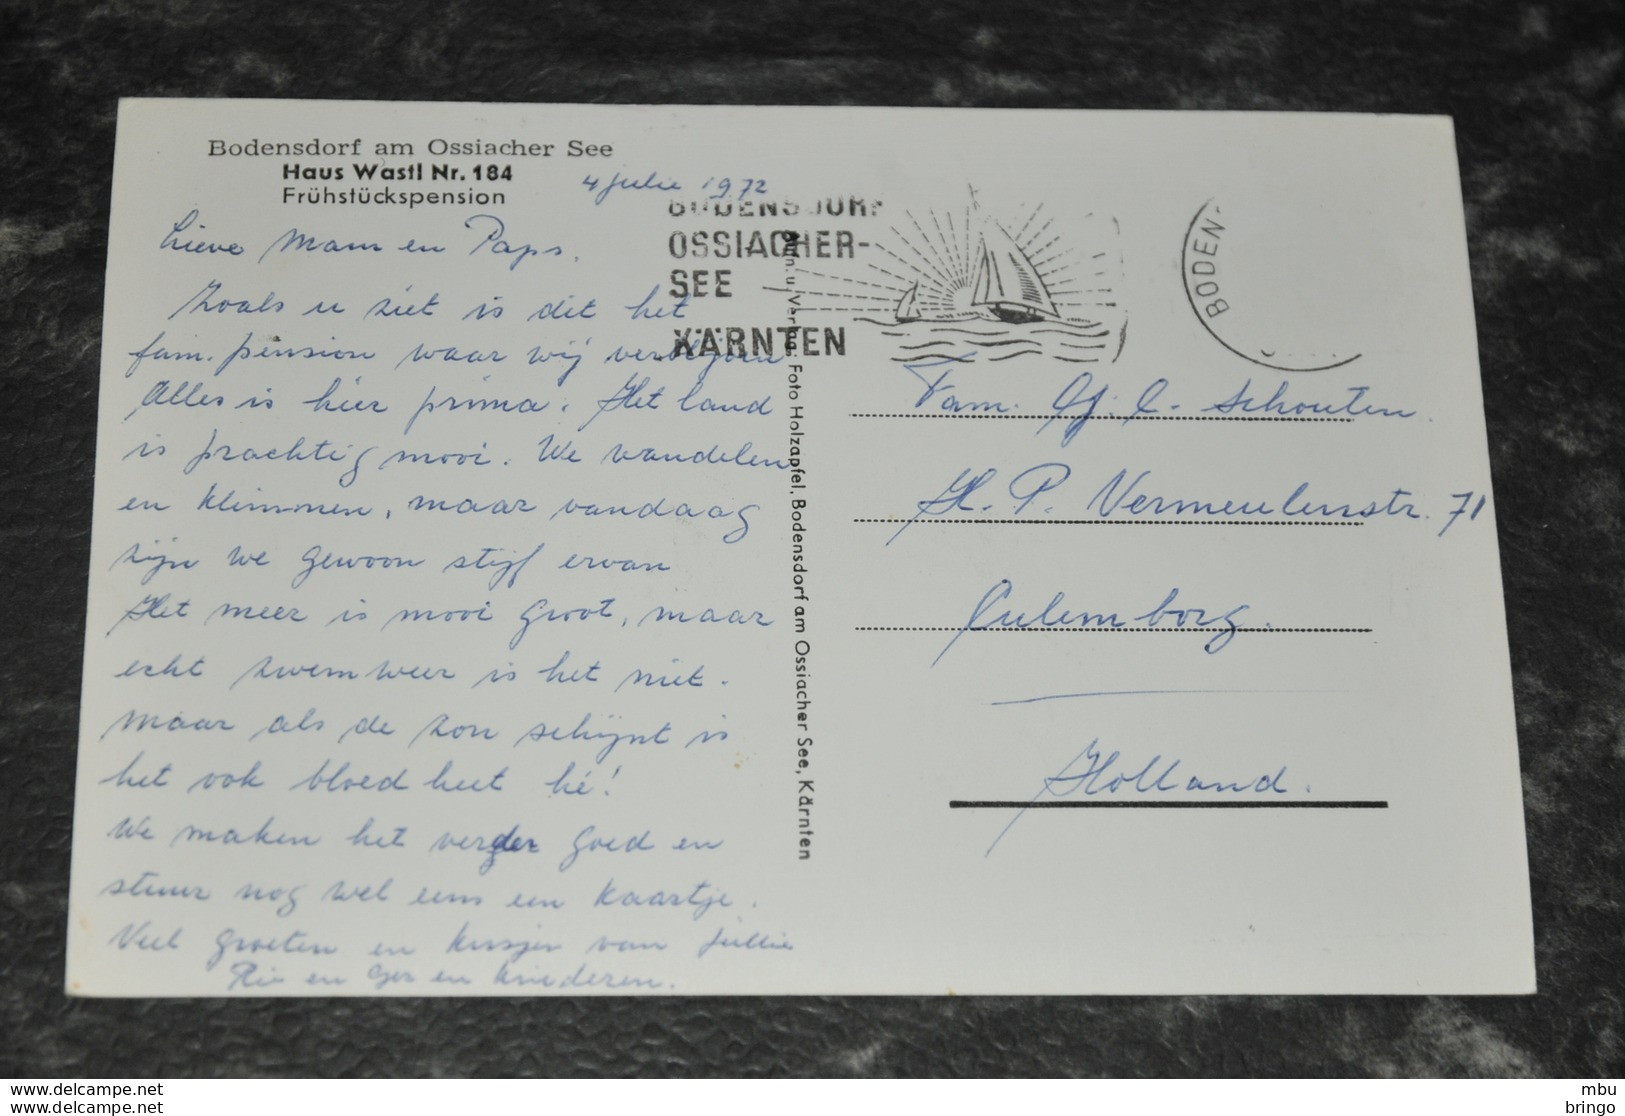 Bodensdorf am Ossiacher See
Haus Wastl Nr. 184
Frühstückspension
4 Julie 1972
Lieve Mam en Paps.
Zoals u ziet is dit het
fam. pension waar wij verblijven
Alles is hier prima. Het land
is prachtig mooi. We wandelen
en klimmen, maar vandaag
zijn we gewoon stijf ervan
Het meer is mooi groot, maar
echt zwemweer is het niet.
maar als de zon schijnt is
het ook bloedheet hé!
We maken het verder goed en
stuur nog wel eens een kaartje.
Veel groeten en kusjes van jullie
Ria en Ger en kinderen.
BODENSDORF
OSSIACHER-
SEE
KÄRNTEN
BODEN
u. Verlag: Foto Holzapfel, Bodensdorf am Ossiacher See, Kärnten
Fam. C. Schouten
H. P. Vermeulenstr. 71
Culemborg.
Holland.
https://www.delcampe.net
https://www.delcampe.net
mbu
bringo